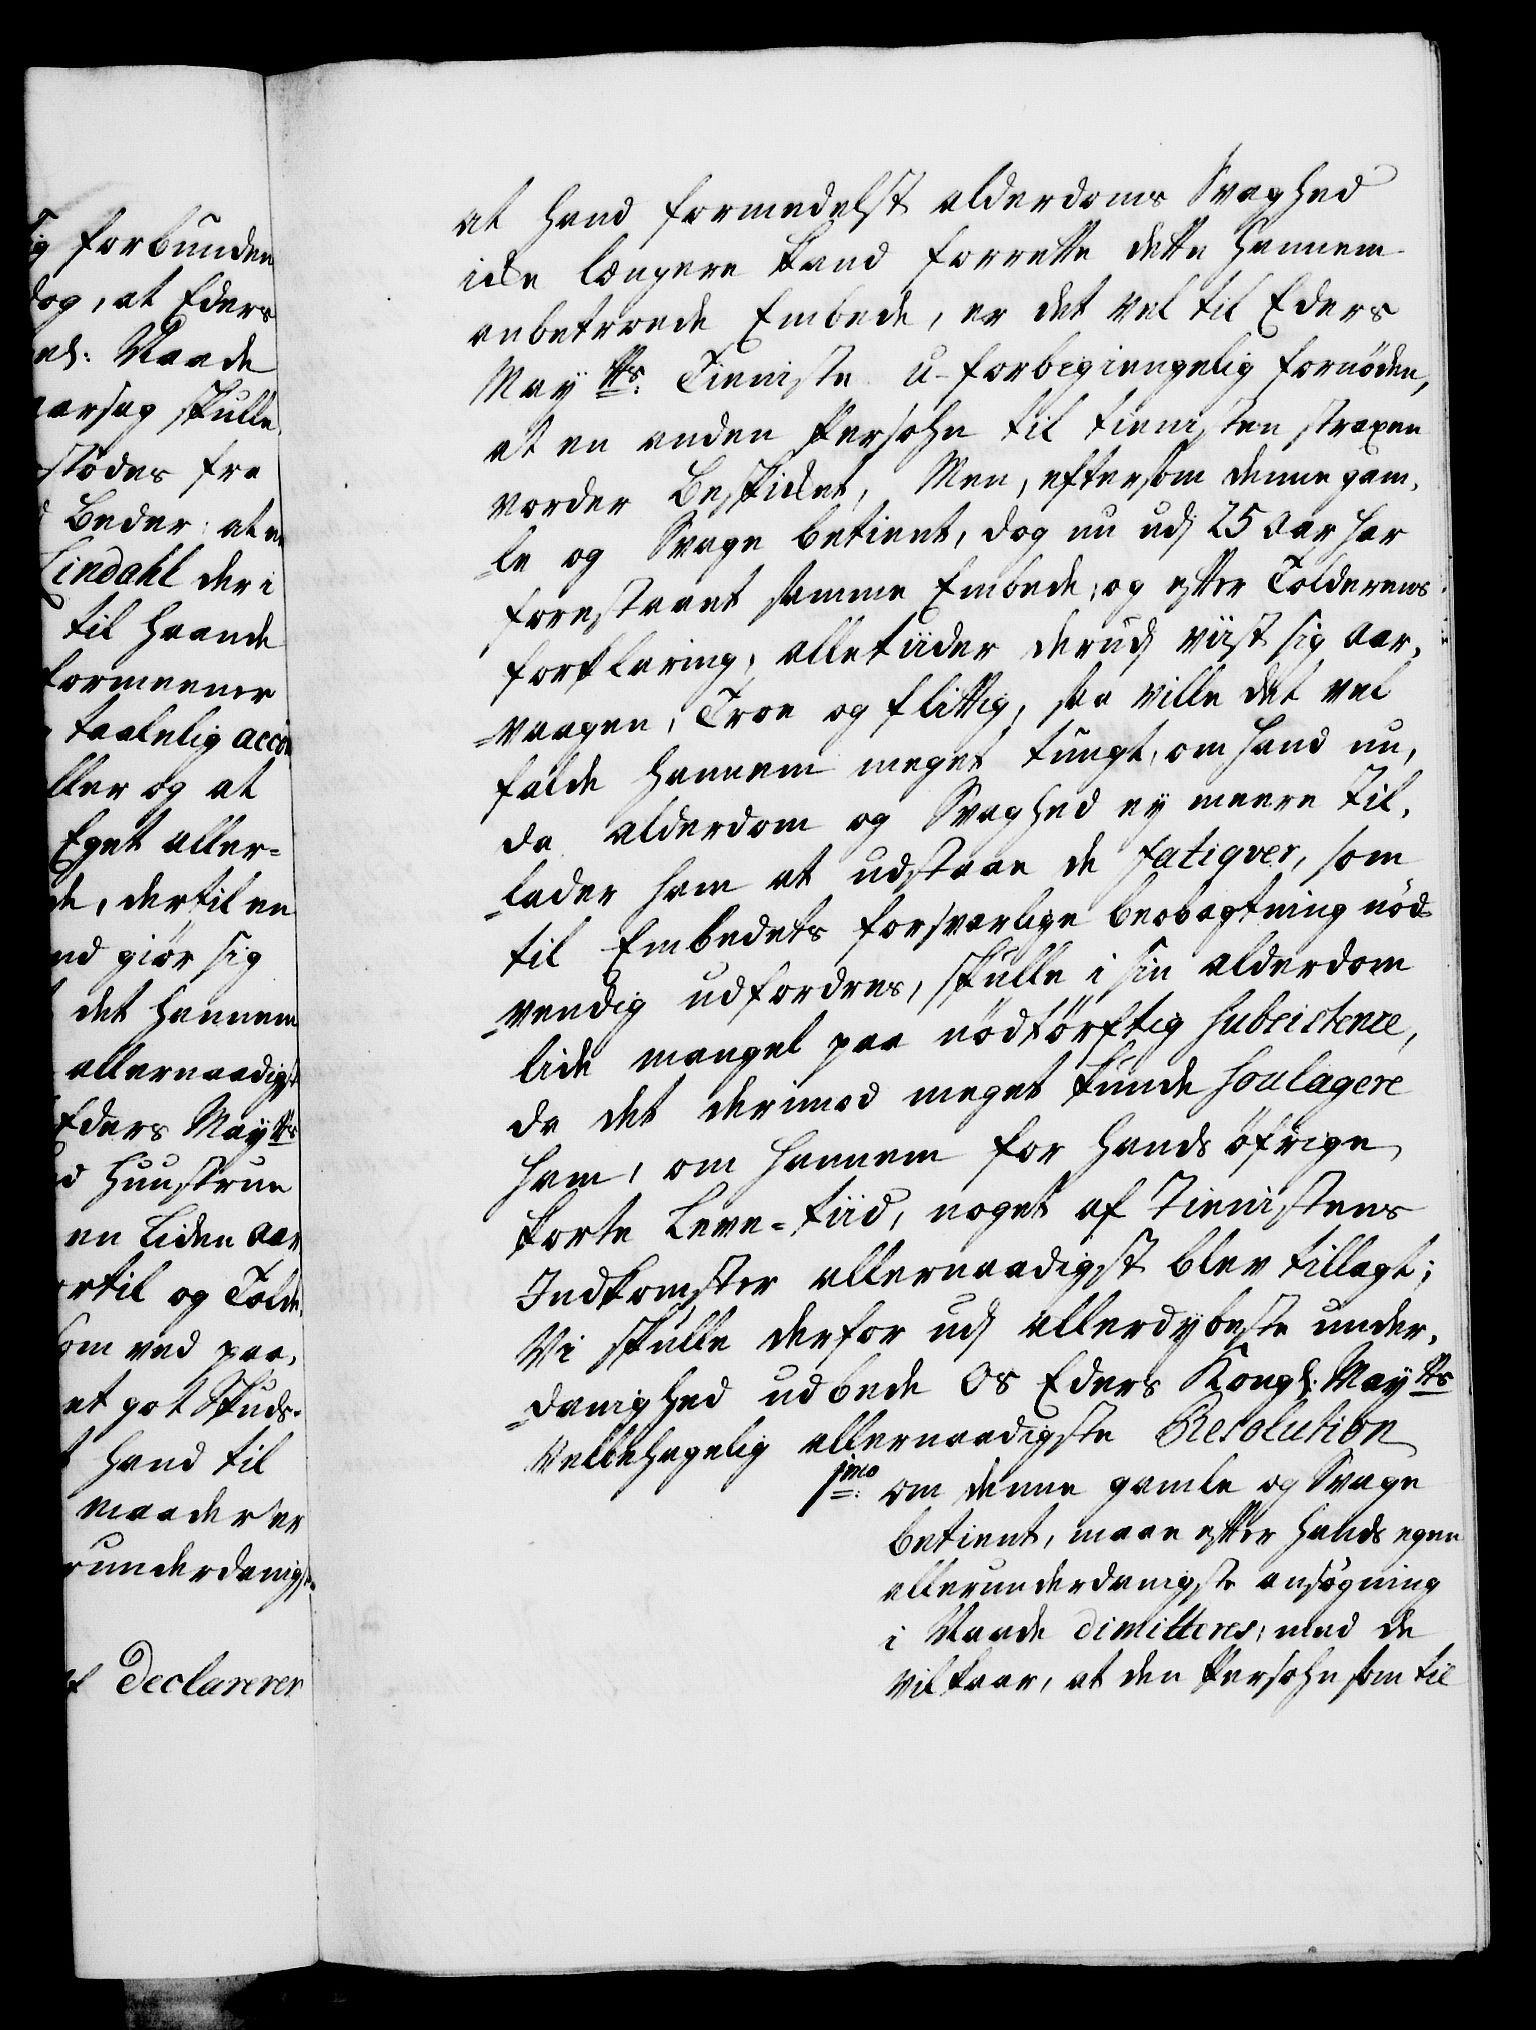 ig forbunden
dog, at Eders
els: Naade
aarsag skulle
stødes fra
Beder: at en
Lindahl der i
til haande
formeener
taalelig acco
ller og at
Eget aller=
de, dertil en
nd giør sig
det hannem
allernaadigst
Eders Maÿtts
d Huustrue
en Liden aar
rtil og Told
som ved paa,
et got Skuds-
hand til
maader er
underdanigst
Declarerer
at hand formedelst alderdoms Svaghed
icke længere kand forrette dette hannem
anbetroede Embede, er det vel til Eders
Maÿtts: Tieniste u-forbigiengelig fornøden,
at en anden Persohn til tienisten straxen
vorder Beskicket, Men, eftersom denne gam,
=le og Svage betient, dog nu udj 25 Aar har
forestaaet samme Embede, og efter Tolderens
forklaring, alletiider derudj viist sig aar,
=vaagen, Troe og flittig, saa ville det vel
falde hannem meget tungt, om hand nu,
da alderdom og Svaghed eÿ meere til,
=lader ham at udstaae de fatiqver, som
til Embedets forsvarlige beobagtning nød=
=vendig udfordres, skulle i sin alderdom
lide mangel paa nødtørftig subsistence,
da det derimod meget kunde soulagere
ham, om hannem for hands øfrige
korte Leve=tiid, noget af Tienistens
Indkomster allernaadigst blev tillagt;
Vi skulle derfor udj allerdÿbeste under,
=danighed udbede Os Eders Kongl: Maÿtts
velbehagelig allernaadigste Resolution
1mo: om denne gamle og Svage
betient, maae efter hands egen
allerunderdanigste ansøgning
i Naade dimitteres, med de
vilkaar, at den Persohn som til